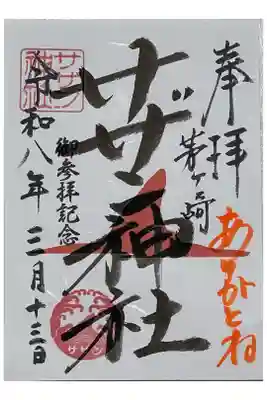 奉拝
茅ヶ崎
ありがとね
サザン神社
御参拝記念
令和八年三月十三日
サザン
神社
サザン